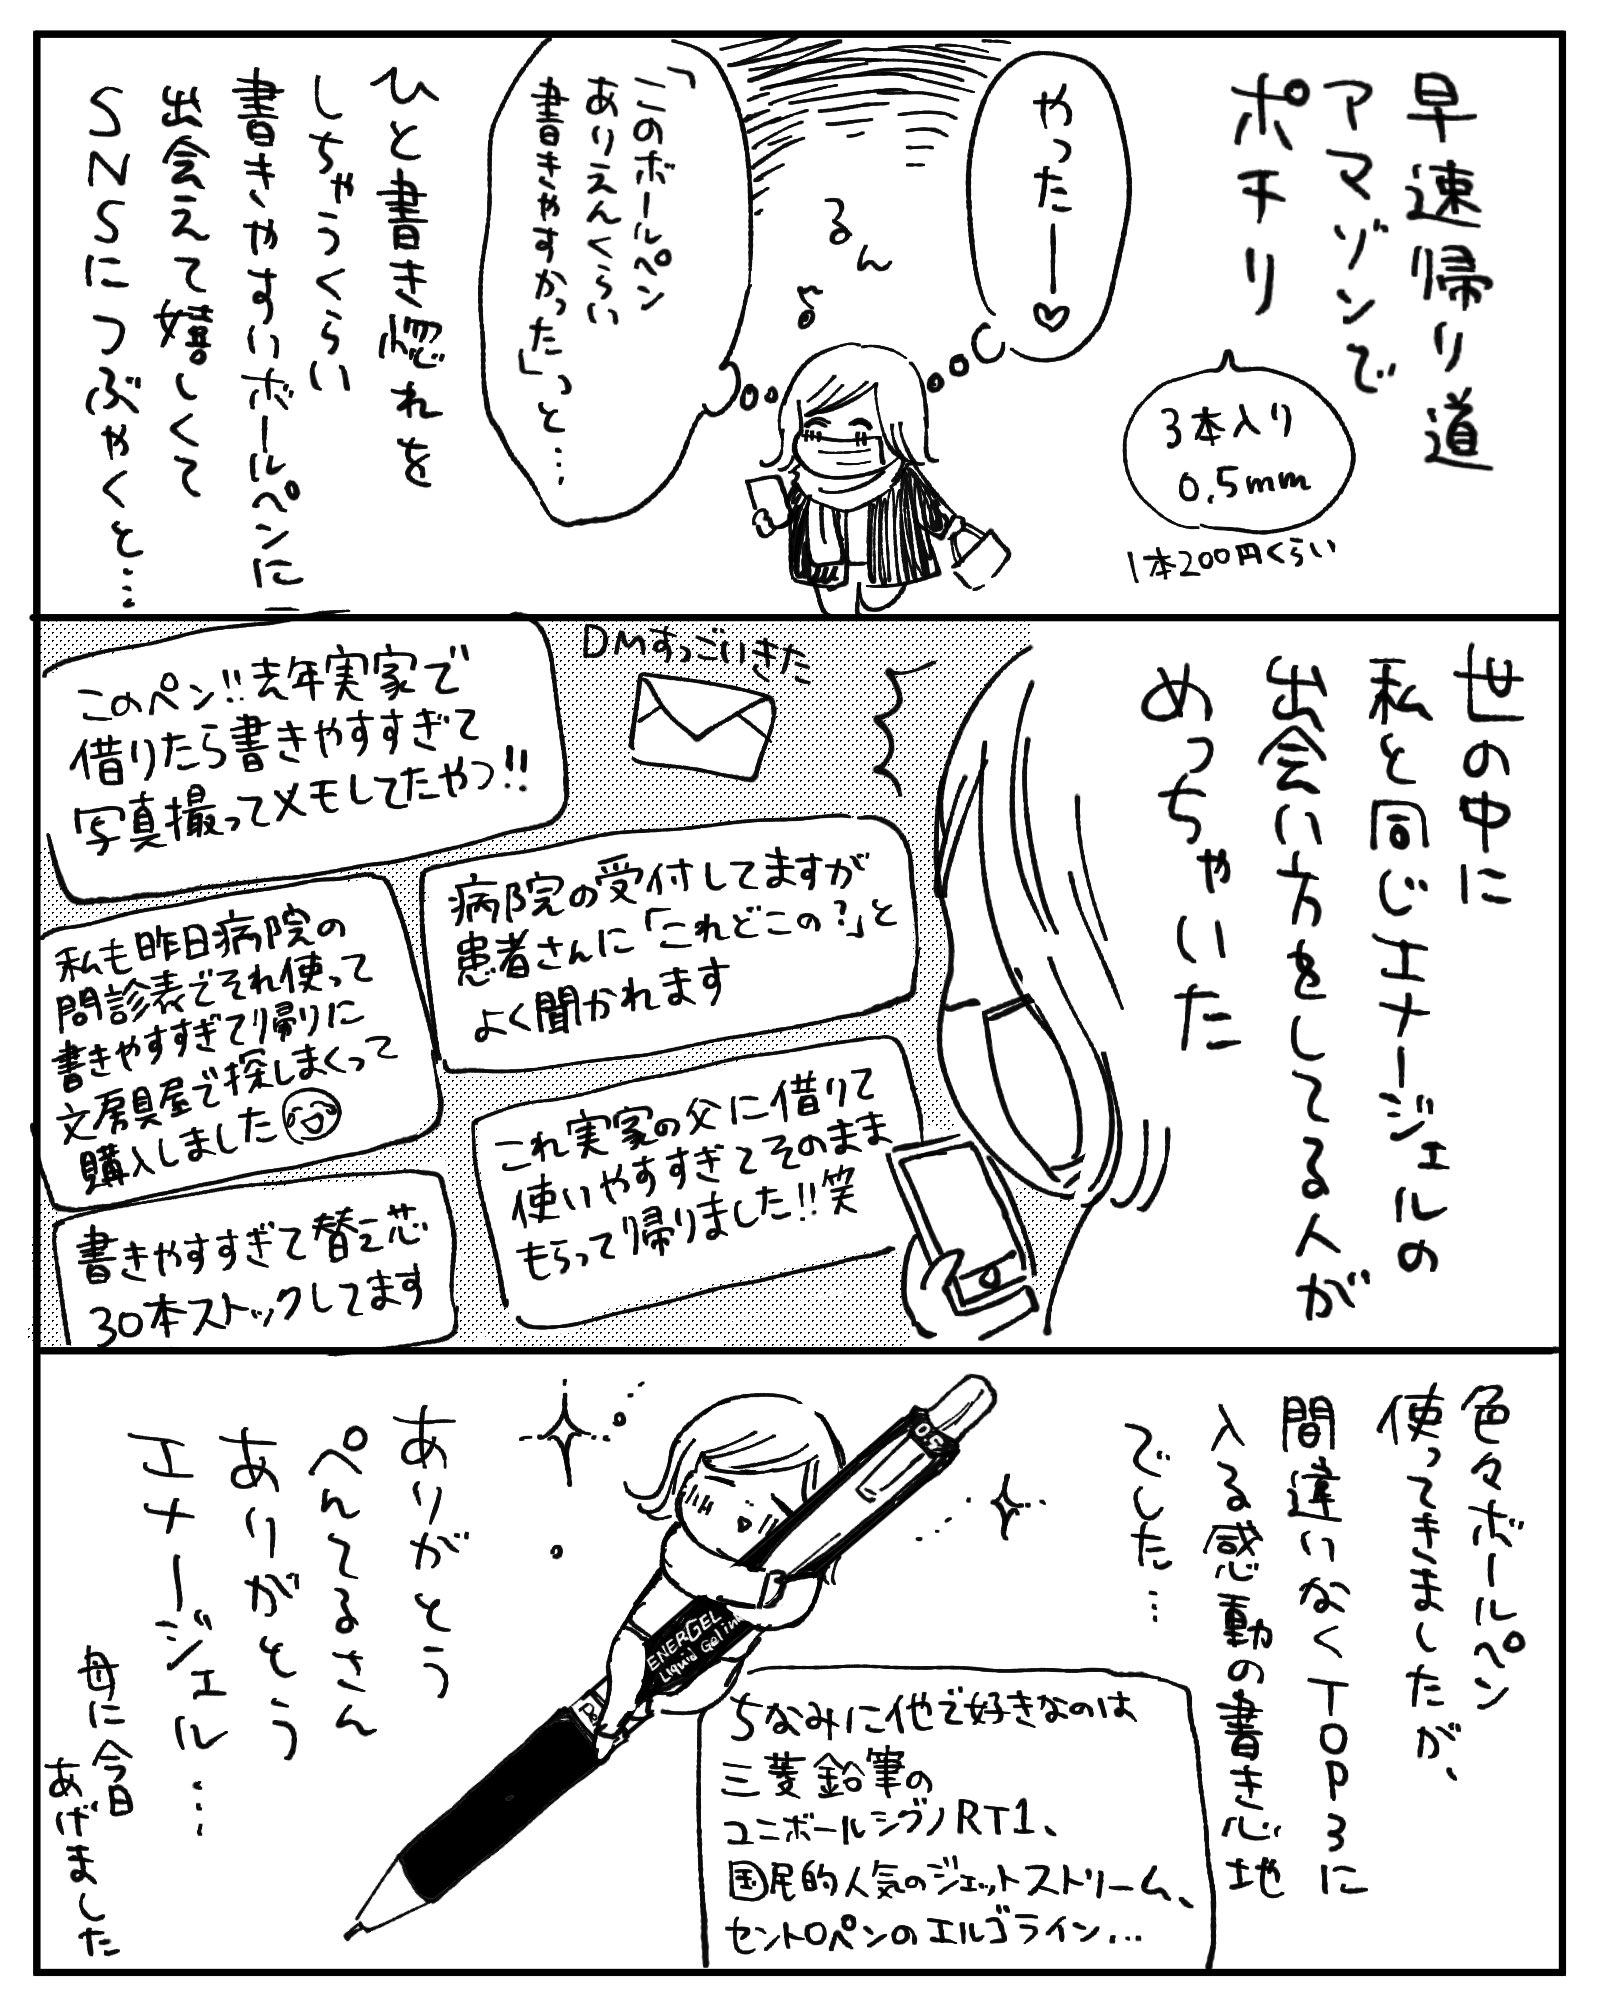 早速帰り道
アマゾンで
ポチリ
3本入り
0.5mm
1本200円くらい
やったー♡
るん♪
「このボールペン
ありえんくらい
書きやすかった」っと…
ひと書き惚れを
しちゃうくらい
書きやすいボールペンに
出会えて嬉しくて
SNSにつぶやくと…
世の中に
私と同じエナージェルの
出会い方をしてる人が
めっちゃいた
DMすっごいきた
このペン!!去年実家で
借りたら書きやすすぎて
写真撮ってメモしてたやつ!!
病院の受付してますが
患者さんに「これどこの?」と
よく聞かれます
私も昨日病院の
問診表でそれ使って
書きやすすぎて帰りに
文房具屋で探しまくって
購入しました
これ実家の父に借りて
使いやすすぎてそのまま
もらって帰りました!!笑
書きやすすぎて替え芯
30本ストックしてます
色々ボールペン
使ってきましたが、
間違いなくTOP3に
入る感動の書き心地
でした…
0.5
ENERGEL
Liquid Gel ink
ちなみに他で好きなのは
三菱鉛筆の
ユニボールシグノRT1、
国民的人気のジェットストリーム、
セントロペンのエルゴライン…
ありがとう
ぺんてるさん
ありがとう
エナージェル…
母に今日
あげました